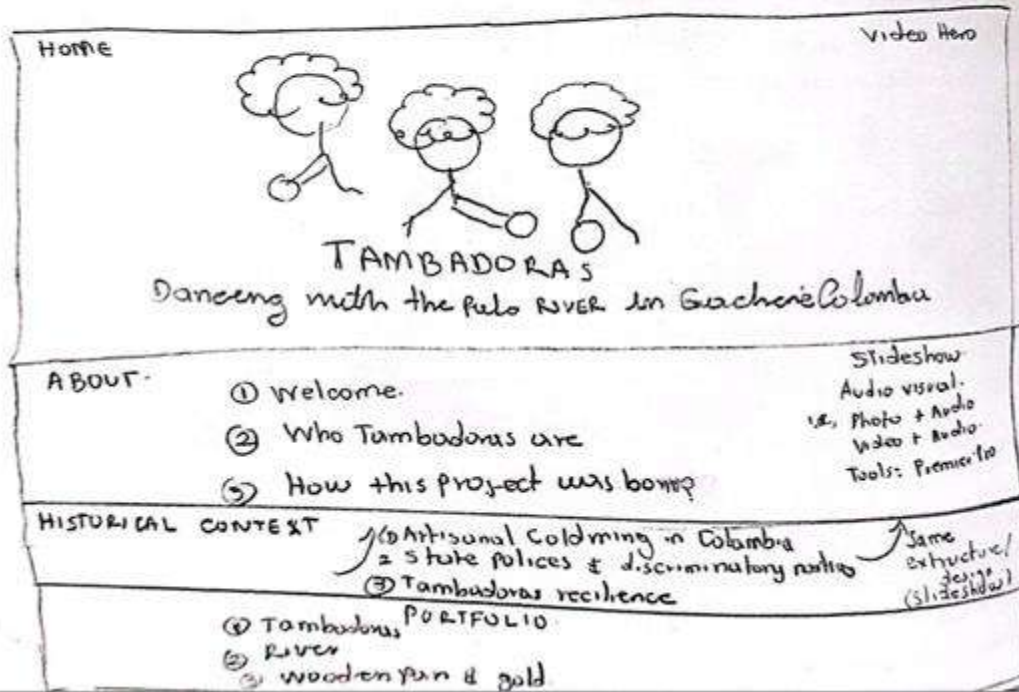 HOME
Video Hero
TAMBADORAS
Dancing with the Palo RIVER in Guachené Colombia
ABOUT.
① Welcome.
② Who Tambadoras are
③ How this project was born?
Slideshow
Audio visual.
i.e, Photo + Audio
Video + Audio.
Tools: Premier Pro
HISTORICAL CONTEXT
① Artisanal Goldming in Colombia
2 State polices & discriminatory
③ Tambadoras recilience
Same
extructure/
design
(slideshow)
PORTFOLIO
① Tambadoras
② River
③ Wooden pan & gold